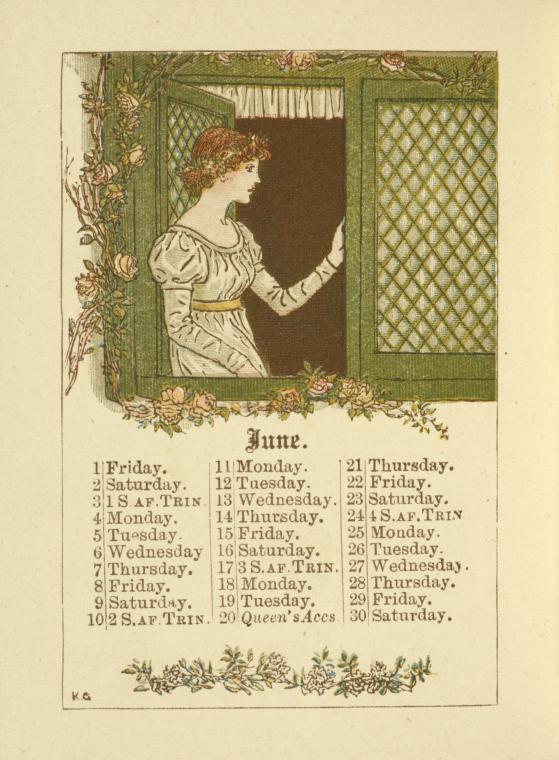 June.
1 Friday.
2 Saturday.
3 1 S AF. TRIN.
4 Monday.
5 Tuesday.
6 Wednesday
7 Thursday.
8 Friday.
9 Saturday.
10 2 S. AF. TRIN.
11 Monday.
12 Tuesday.
13 Wednesday.
14 Thursday.
15 Friday.
16 Saturday.
17 3 S. AF. TRIN.
18 Monday.
19 Tuesday.
20 Queen's Accs
21 Thursday.
22 Friday.
23 Saturday.
24 4 S. AF. TRIN
25 Monday.
26 Tuesday.
27 Wednesday.
28 Thursday.
29 Friday.
30 Saturday.
K.G.